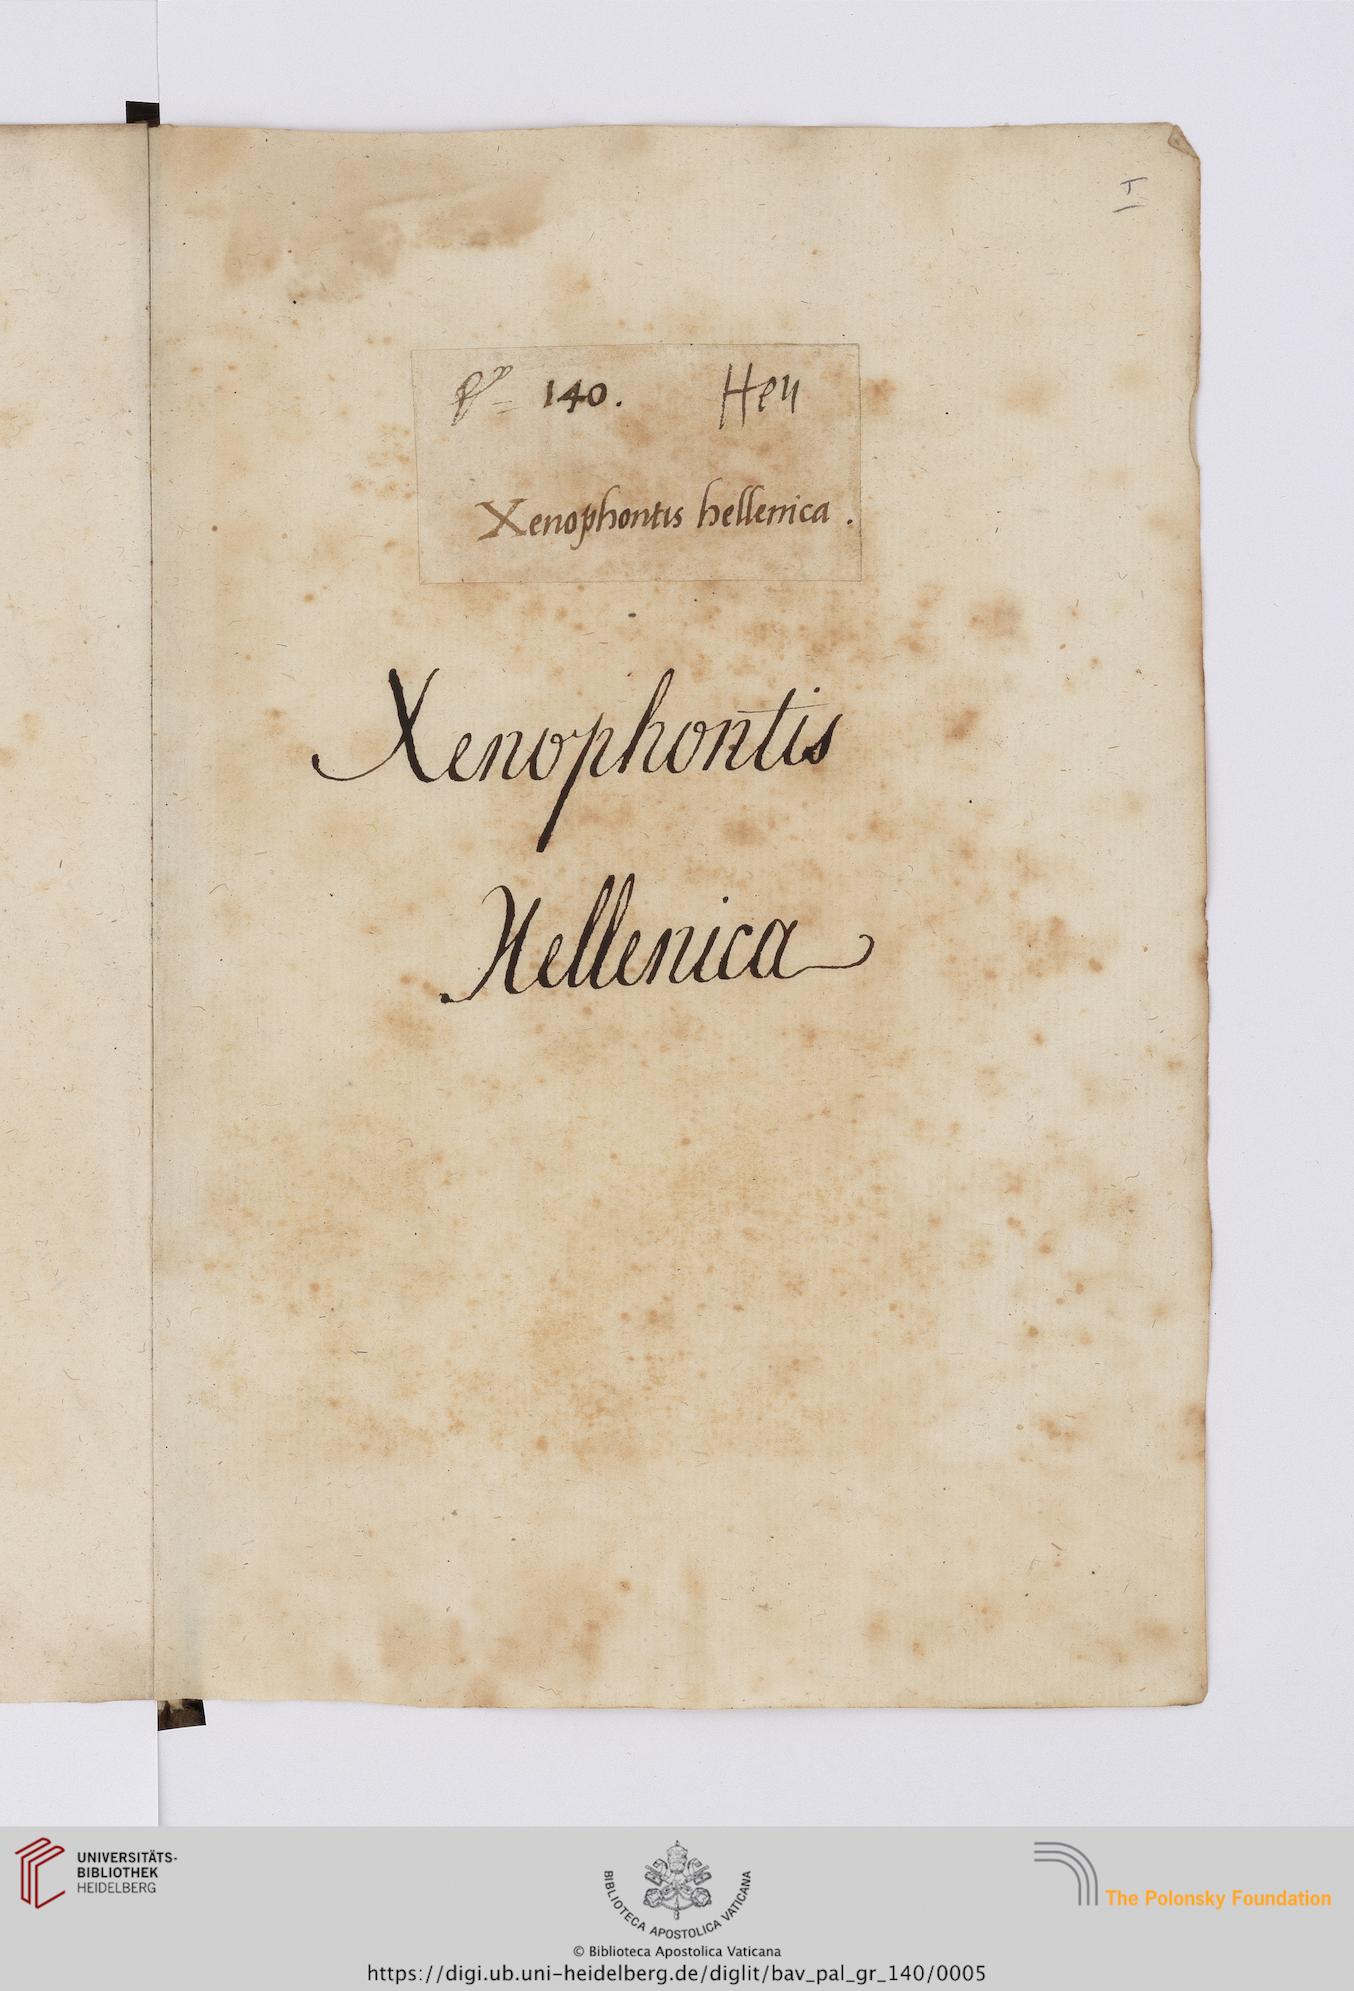 I
140. Hen
Xenophontis hellenica.
Xenophontis
Hellenica
UNIVERSITÄTS-
BIBLIOTHEK
HEIDELBERG
BIBLIOTECA APOSTOLICA VATICANA
The Polonsky Foundation
© Biblioteca Apostolica Vaticana
https://digi.ub.uni-heidelberg.de/diglit/bav_pal_gr_140/0005